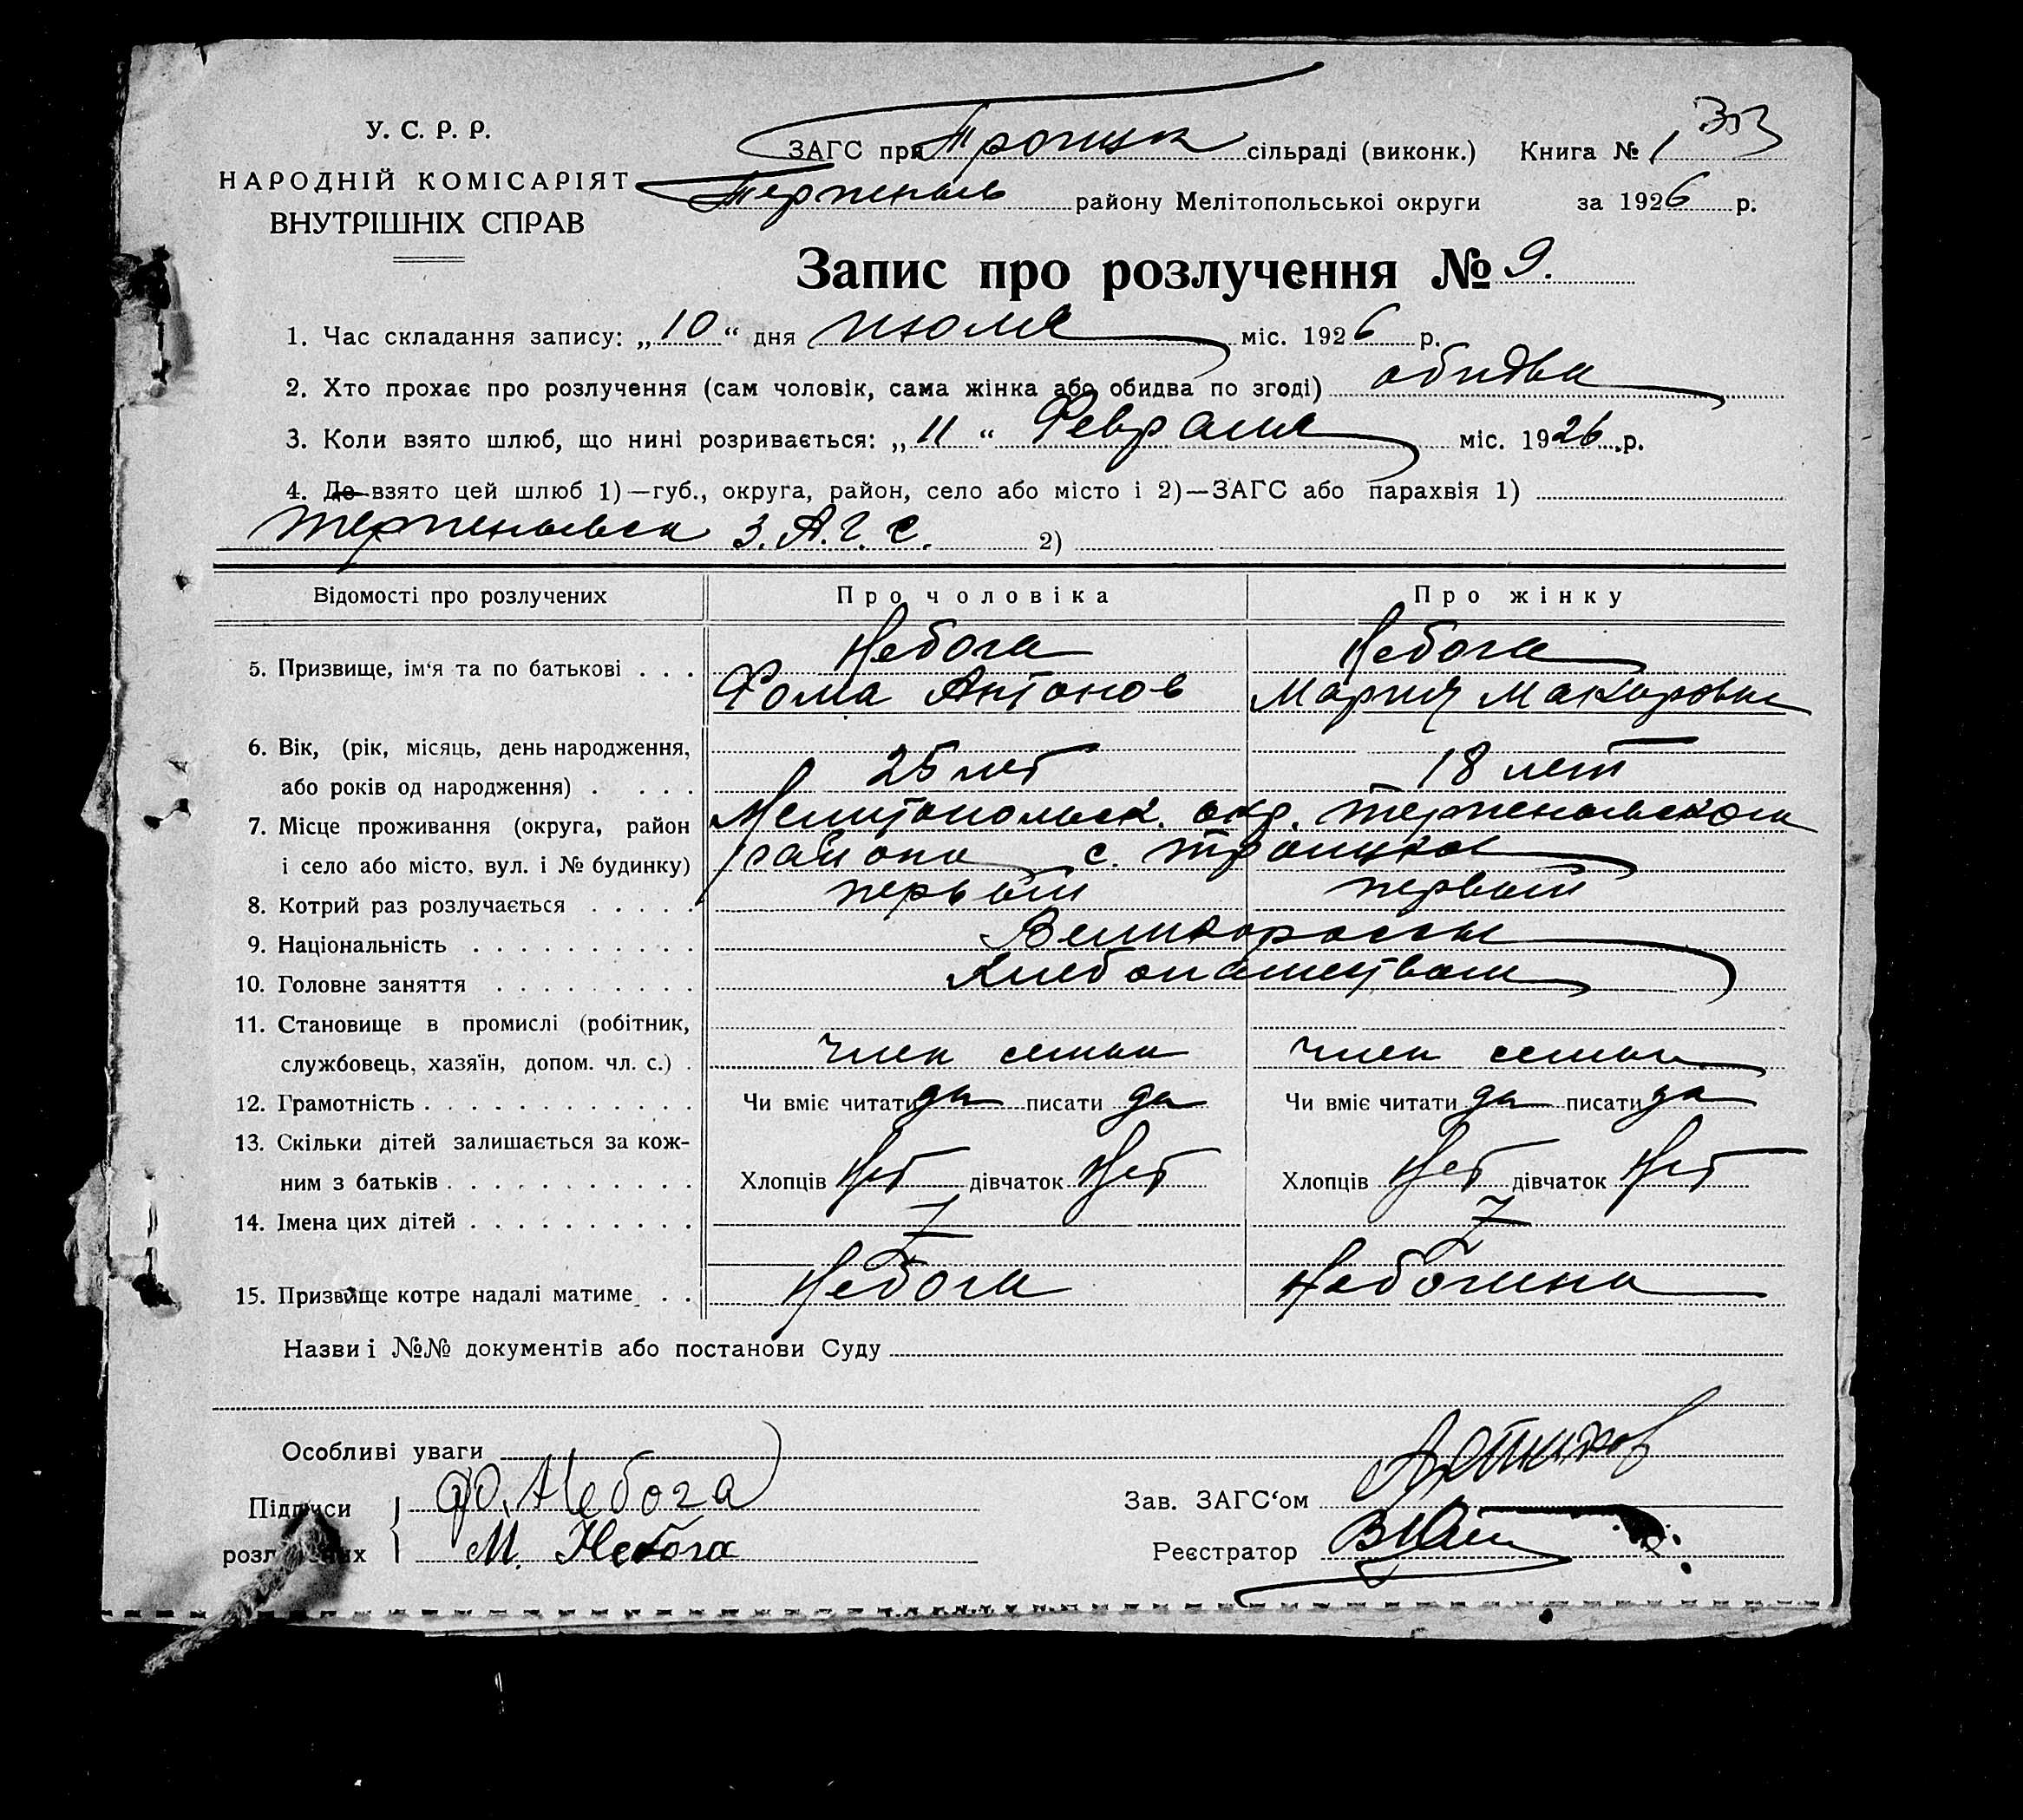 У. С. Р. Р.
НАРОДНІЙ КОМІСАРІЯТ
ВНУТРІШНІХ СПРАВ
ЗАГС при Троицк сільраді (виконк.) Книга № 1
Терпеньев району Мелітопольської округи за 1926 р.
Запис про розлучення № 9.
1. Час складання запису: „10“ дня июля міс. 1926 р.
2. Хто прохає про розлучення (сам чоловік, сама жінка або обидва по згоді) обидва
3. Коли взято шлюб, що нині розривається: „11“ Февраля міс. 1926 р.
4. Де взято цей шлюб 1)—губ., округа, район, село або місто і 2)—ЗАГС або парахвія 1)
Терпеньевск З.А.Г.С. 2)
Відомості про розлучених Про чоловіка Про жінку
5. Призвище, ім‘я та по батькові . . . Небога Небога
Фома Антонов Мария Макаровна
6. Вік, (рік, місяць, день народження,
або років од народження) . . . . 25 лет 18 лет
7. Місце проживання (округа, район Мелитопольск. окр. Терпеньевского
і село або місто, вул. і № будинку) района с. Троицкое
8. Котрий раз розлучається . . . . . первый первый
9. Національність . . . . . . . . . . Великороссы
10. Головне заняття . . . . . . . . . Хлебопашеством
11. Становище в промислі (робітник,
службовець, хазяїн, допом. чл. с.) . член семьи член семьи
12. Грамотність . . . . . . . . . . . . Чи вміє читати да писати да Чи вміє читати да писати да
13. Скільки дітей залишається за кож-
ним з батьків . . . . . . . . . . . Хлопців Нет дівчаток Нет Хлопців Нет дівчаток Нет
14. Імена цих дітей . . . . . . . . . .
15. Призвище котре надалі матиме . . Небога Небогина
Назви і №№ документів або постанови Суду
Особливі уваги
Підписи Ф. Небога Зав. ЗАГС‘ом
М. Небога Реєстратор